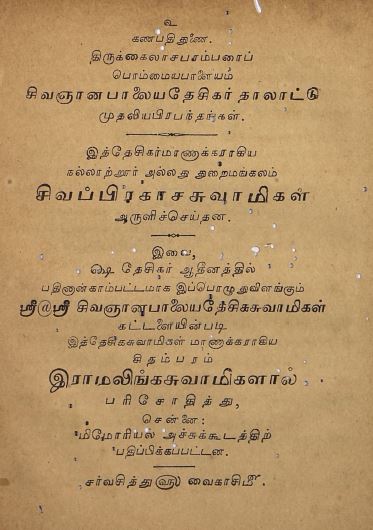 உ
கணபதிதுணை.
திருக்கைலாசபரம்பரைப்
பொம்மையபாளையம்
சிவஞானபாலையதேசிகர் தாலாட்டு
முதலியபிரபந்தங்கள்.
இத்தேசிகர்மாணாக்கராகிய
கல்லாற்றூர் அல்லது துறைமங்கலம்
சிவப்பிரகாசசுவாமிகள்
அருளிச்செய்தன.
இவை,
௸ தேசிகர் ஆதீனத்தில்
பதினான்காம்பட்டமாக இப்பொழுதுவிளங்கும்
ஸ்ரீலஸ்ரீ சிவஞானபாலையதேசிகசுவாமிகள்
கட்டளையின்படி
இத்தேசிகசுவாமிகள் மாணாக்கராகிய
சிதம்பரம்
இராமலிங்கசுவாமிகளால்
பரிசோதித்து,
சென்னை:
மிமோரியல் அச்சுக்கூடத்திற்
பதிப்பிக்கப்பட்டன.
சர்வசித்து௵ வைகாசி௴.